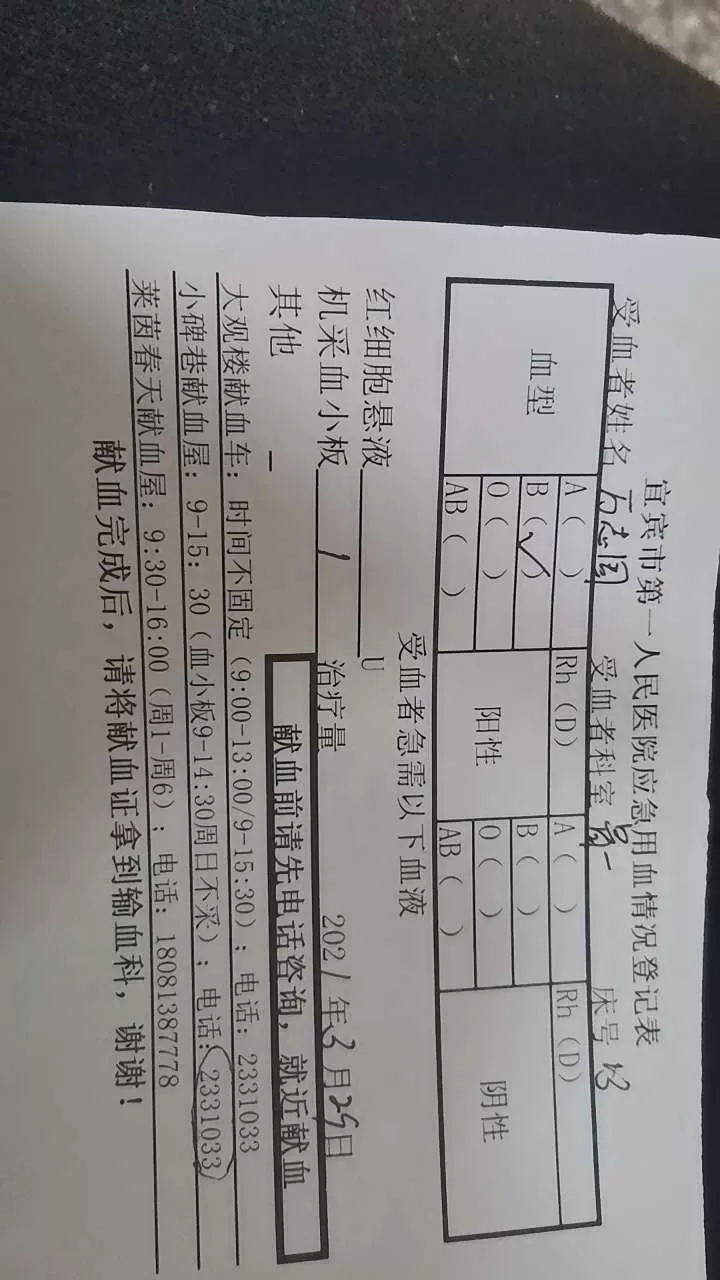 宜宾市第一人民医院应急用血情况登记表
受血者姓名 万志国 受血者科室 胃一 床号 13
血型 A( ) Rh(D) 阳性 A( ) Rh(D) 阴性
B(✓) B( )
O( ) O( )
AB( ) AB( )
受血者急需以下血液
红细胞悬液 U
机采血小板 1 治疗量 2021年3月29日
其他 献血前请先电话咨询,就近献血
大观楼献血车:时间不固定(9:00-13:00/9-15:30);电话:2331033
小碑巷献血屋:9-15:30(血小板9-14:30周日不采);电话:2331033
莱茵春天献血屋:9:30-16:00(周1-周6);电话:18081387778
献血完成后,请将献血证拿到输血科,谢谢!